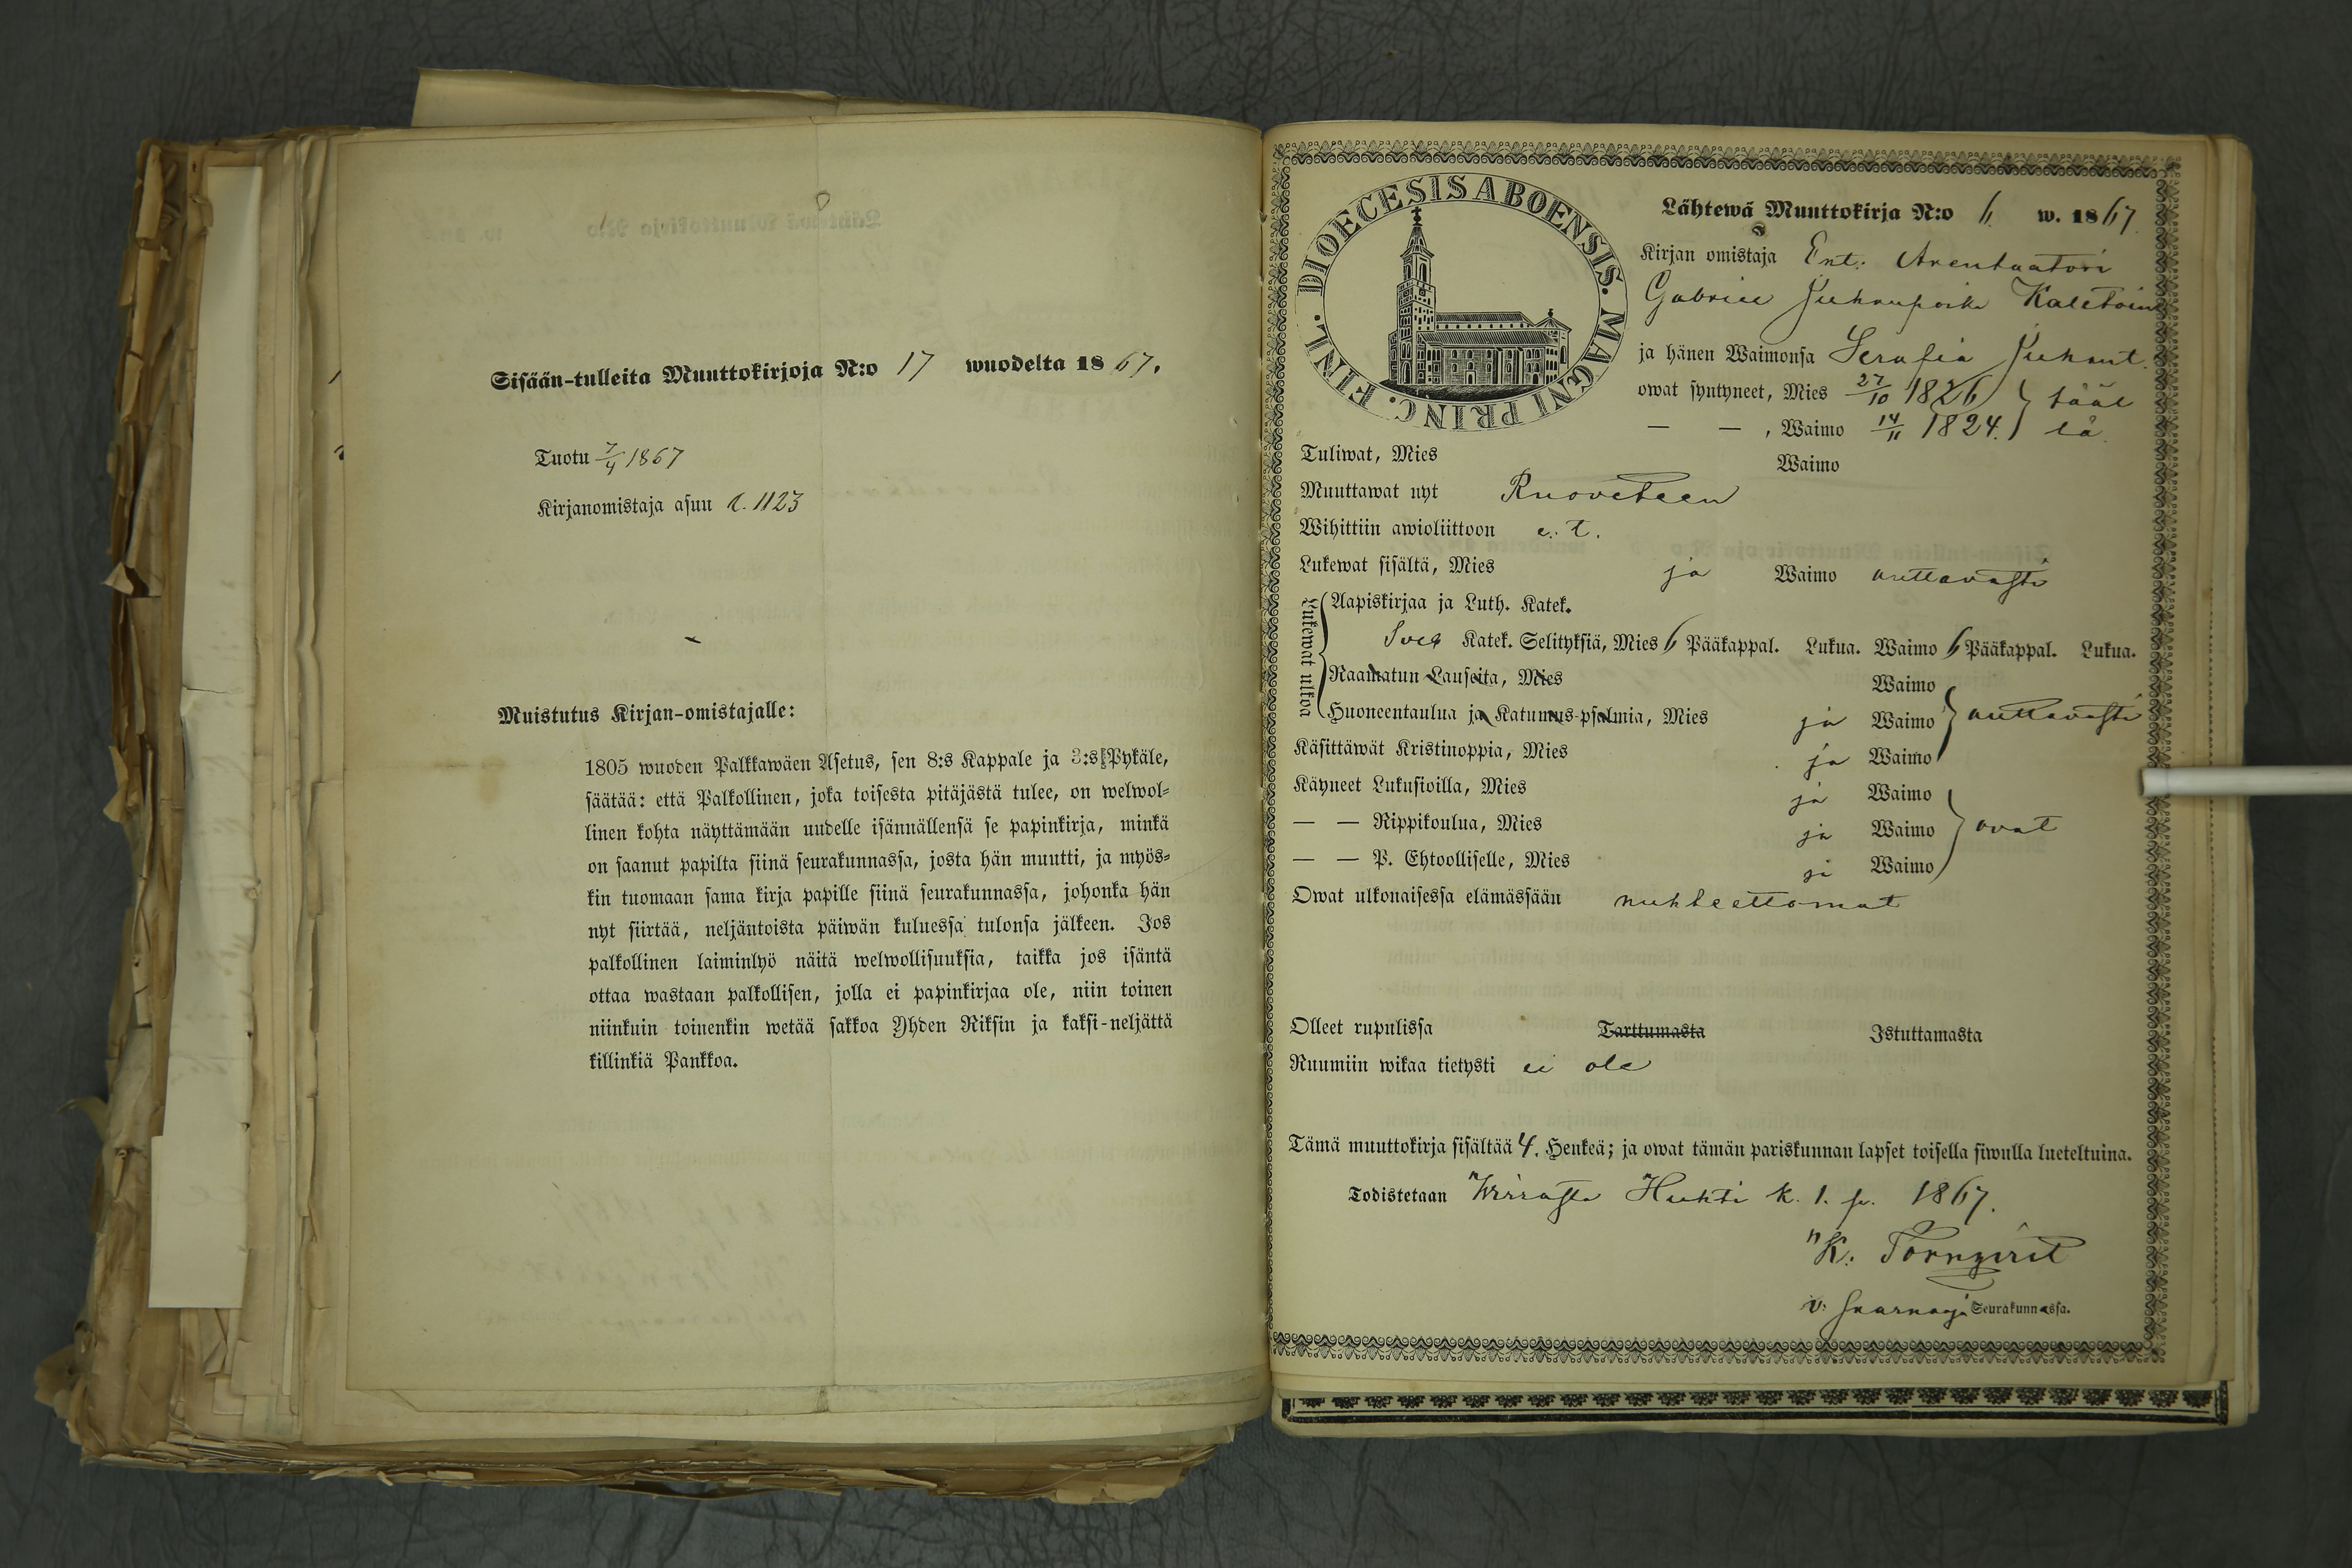 Sisään-tulleita Muuttokirjoja N:o 17 wuodelta 1867.
Tuotu 7/4 1867
Kirjanomistaja asuu s. 1123
Muistutus Kirjan-omistajalle:
1805 wuoden Palkkawäen Asetus, sen 8:s Kappale ja 3:s Pykäle,
säätää: että Palkollinen, joka toisesta pitäjästä tulee, on welwol-
linen kohta näyttämään uudelle isännällensä se papinkirja, minkä
on saanut papilta siinä seurakunnassa, josta hän muutti, ja myös-
kin tuomaan sama kirja papille siinä seurakunnassa, johonka hän
nyt siirtää, neljäntoista päiwän kuluessa tulonsa jälkeen. Jos
palkollinen laiminlyö näitä welwollisuuksia, taikka jos isäntä
ottaa wastaan palkollisen, jolla ei papinkirjaa ole, niin toinen
niinkuin toinenkin wetää sakkoa Yhden Riksin ja kaksi-neljättä
killinkiä Pankkoa.
DIOECESIS ABOENSIS. MAGNI PRINC. FINL.
Lähtewä Muuttokirja N:o 6. w. 1867.
Kirjan omistaja Ent. Arentaatori
Gabriel Juhanpoika
ja hänen Waimonsa Serafia Juhant.
owat syntyneet, Mies 27/10 1826 } tääl
— — , Waimo 14/11 1824. } lä.
Tuliwat, Mies Waimo
Muuttawat nyt Ruoveteen
Wihittiin awioliittoon e. t.
Lukewat sisältä, Mies ja Waimo auttavasti
Lukewat ulkoa
Aapiskirjaa ja Luth. Katek.
Sveb Katek. Selityksiä, Mies 6 Pääkappal. Lukua. Waimo 6 Pääkappal. Lukua.
Raamatun Lauseita, Mies Waimo
Huoneentaulua ja Katumus-psalmia, Mies ja Waimo } auttavasti
Käsittäwät Kristinoppia, Mies ja Waimo
Käyneet Lukusioilla, Mies ja Waimo
— — Rippikoulua, Mies ja Waimo } ovat
— — P. Ehtoolliselle, Mies ja Waimo
Owat ulkonaisessa elämässään nuhteettomat
Olleet rupulissa Tarttumasta Istuttamasta
Ruumiin wikaa tietysti ei ole
Tämä muuttokirja sisältää 4. Henkeä; ja owat tämän pariskunnan lapset toisella siwulla lueteltuina.
Todistetaan Wirrasta Huhti k. 1. p. 1867.
K. Törnqvist
v. Saarnaaja Seurakunnassa.